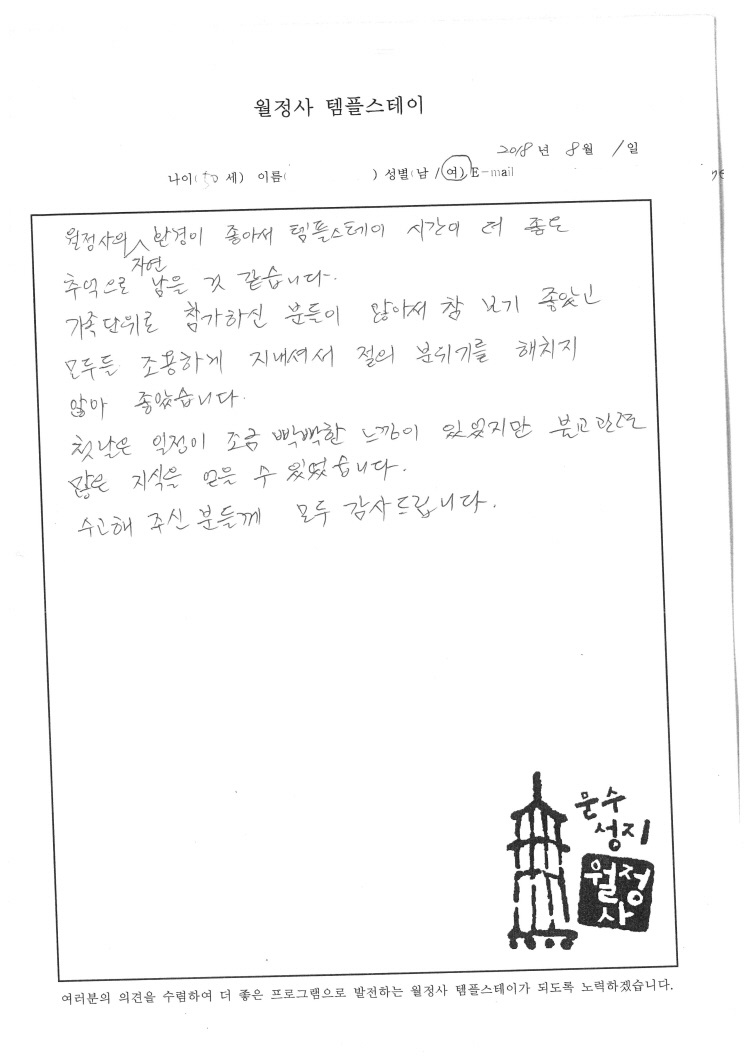 월정사 템플스테이
2018년 8월 1일
나이( 50 세) 이름( ) 성별(남 / 여) E-mail
월정사의 자연 환경이 좋아서 템플스테이 시간이 더 좋은
추억으로 남을 것 같습니다.
가족단위로 참가하신 분들이 많아서 참 보기 좋았고
모두들 조용하게 지내셔서 절의 분위기를 해치지
않아 좋았습니다.
첫날은 일정이 조금 빡빡한 느낌이 있었지만 불교관련
많은 지식을 얻을 수 있었습니다.
수고해 주신 분들께 모두 감사드립니다.
문수
성지
월정
사
여러분의 의견을 수렴하여 더 좋은 프로그램으로 발전하는 월정사 템플스테이가 되도록 노력하겠습니다.